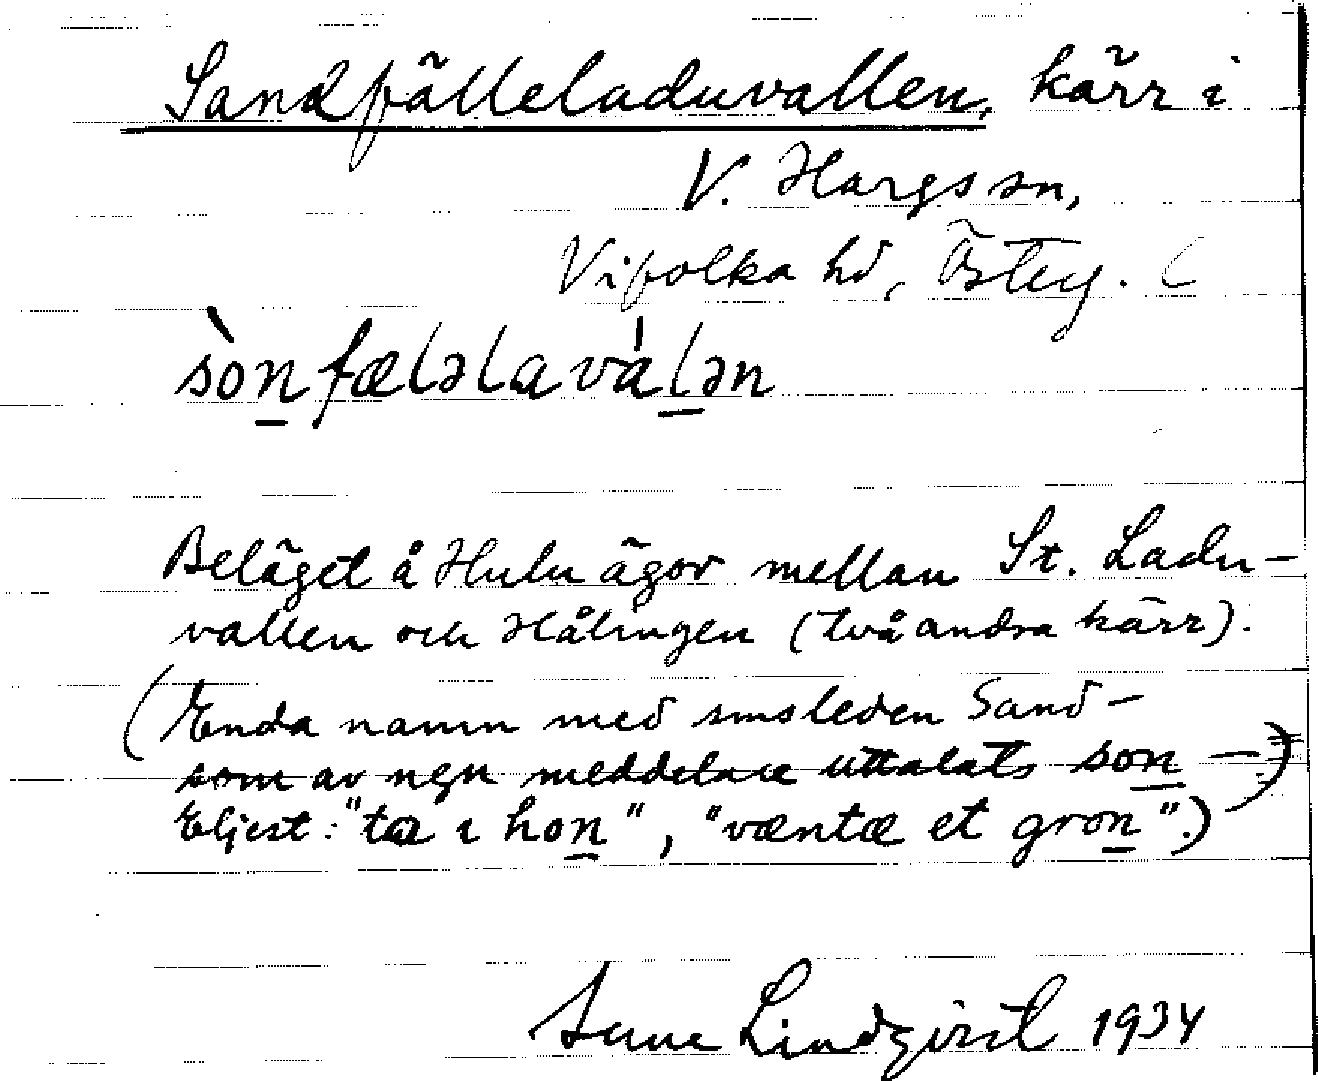 Sandfälleladuvallen, kärr i
V. Hargs sn,
Vifolka hd,Österg. (
sònfæləlavàlən
Beläget å Hulu ägor mellan St. Ladu-
vallen och Hålingen (två andra kärr).
(Enda namn med smsleden Sand-
som av ngn meddelare uttalats son -)
Eljest: "ta i hon", "væntæ et gron".)
Sune Lindqvist 1934